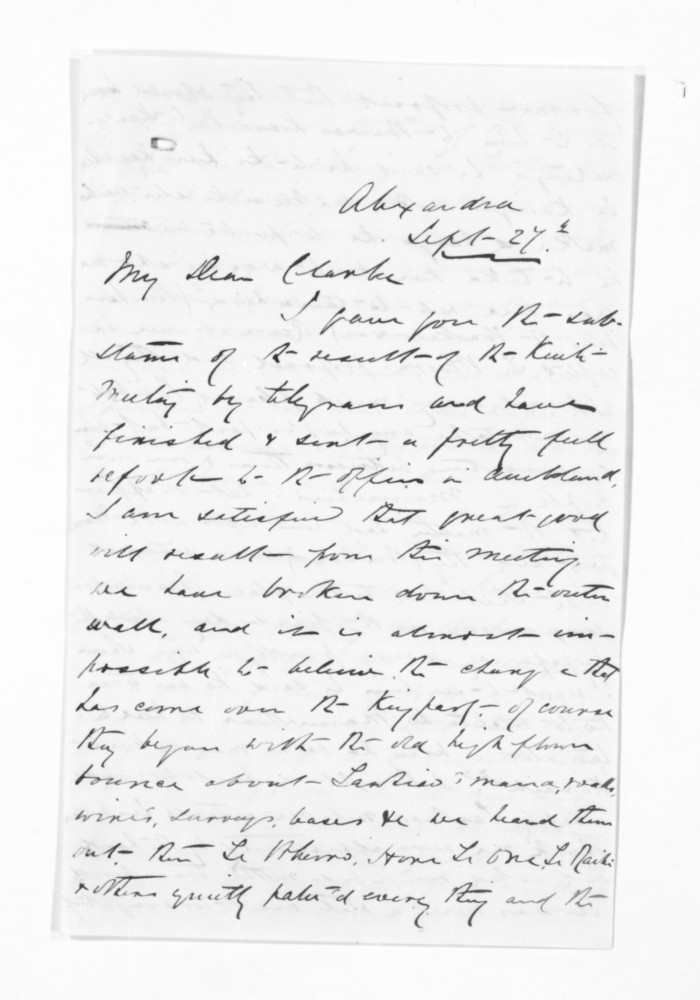 Alexandra
Sept 27th
My Dear Clarke
I gave you the sub-
stance of the result of the Kuiti
Meeting by telegram and have
finished & sent a pretty full
report to the office in Auckland.
I am satisfied that great good
will result from the meeting
we have broken down the outer
wall, and it is almost im-
possible to believe the change that
has come over the King party. of course
they began with the old high flown
bounce about Tawhiao's mana, roads,
wires, surveys, leases &c we heard them
out. then Te Wheoro, Hone Te One, Te Raihi
& others quietly patu'd every thing and the